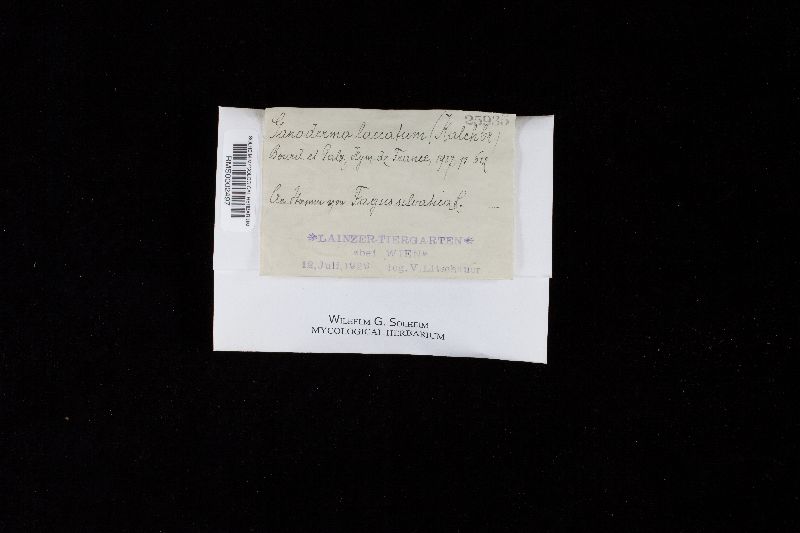 25935
Ganoderma laccatum (Kalchbr.)
Bourd. et Galz., Hym. de France, 1927, p. 612
An Stamm von Fagus silvatica L.
*LAINZER-TIERGARTEN*
*bei WIEN*
12.Juli,1929 leg.V.Litschauer
WILHELM G. SOLHEIM
MYCOLOGICAL HERBARIUM
SOLHEIM MYCOLOGICAL HERBARIUM